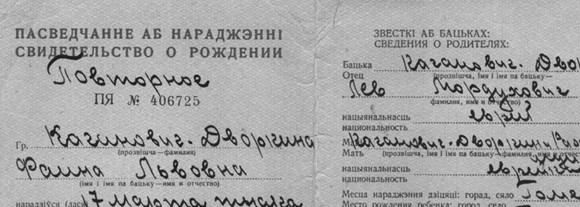 ПАСВЕДЧАННЕ АБ НАРАДЖЭННІ
СВИДЕТЕЛЬСТВО О РОЖДЕНИИ
Повторное
ПЯ № 406725
Гр. Каганович-Дворкина
(прозвішча—фамилия)
Фаина Львовна
(імя і імя па бацьку—имя и отчество)
нарадзіўся (лася) 17 марта
ЗВЕСТКІ АБ БАЦЬКАХ:
СВЕДЕНИЯ О РОДИТЕЛЯХ:
Бацька Каганович-Двор
Отец (прозвішча, імя і імя па бацьку—
Лев Мордухович
фамилия, имя и отчество)
нацыянальнасць
национальность еврей
Каганович-Дворкина
Мать (прозвішча, імя і імя па бацьку—
фамилия, имя и отчество)
нацыянальнасць
национальность еврейка
Месца нараджэння дзіцяці: горад, сяло Гоме
Место рождения ребенка: город, село